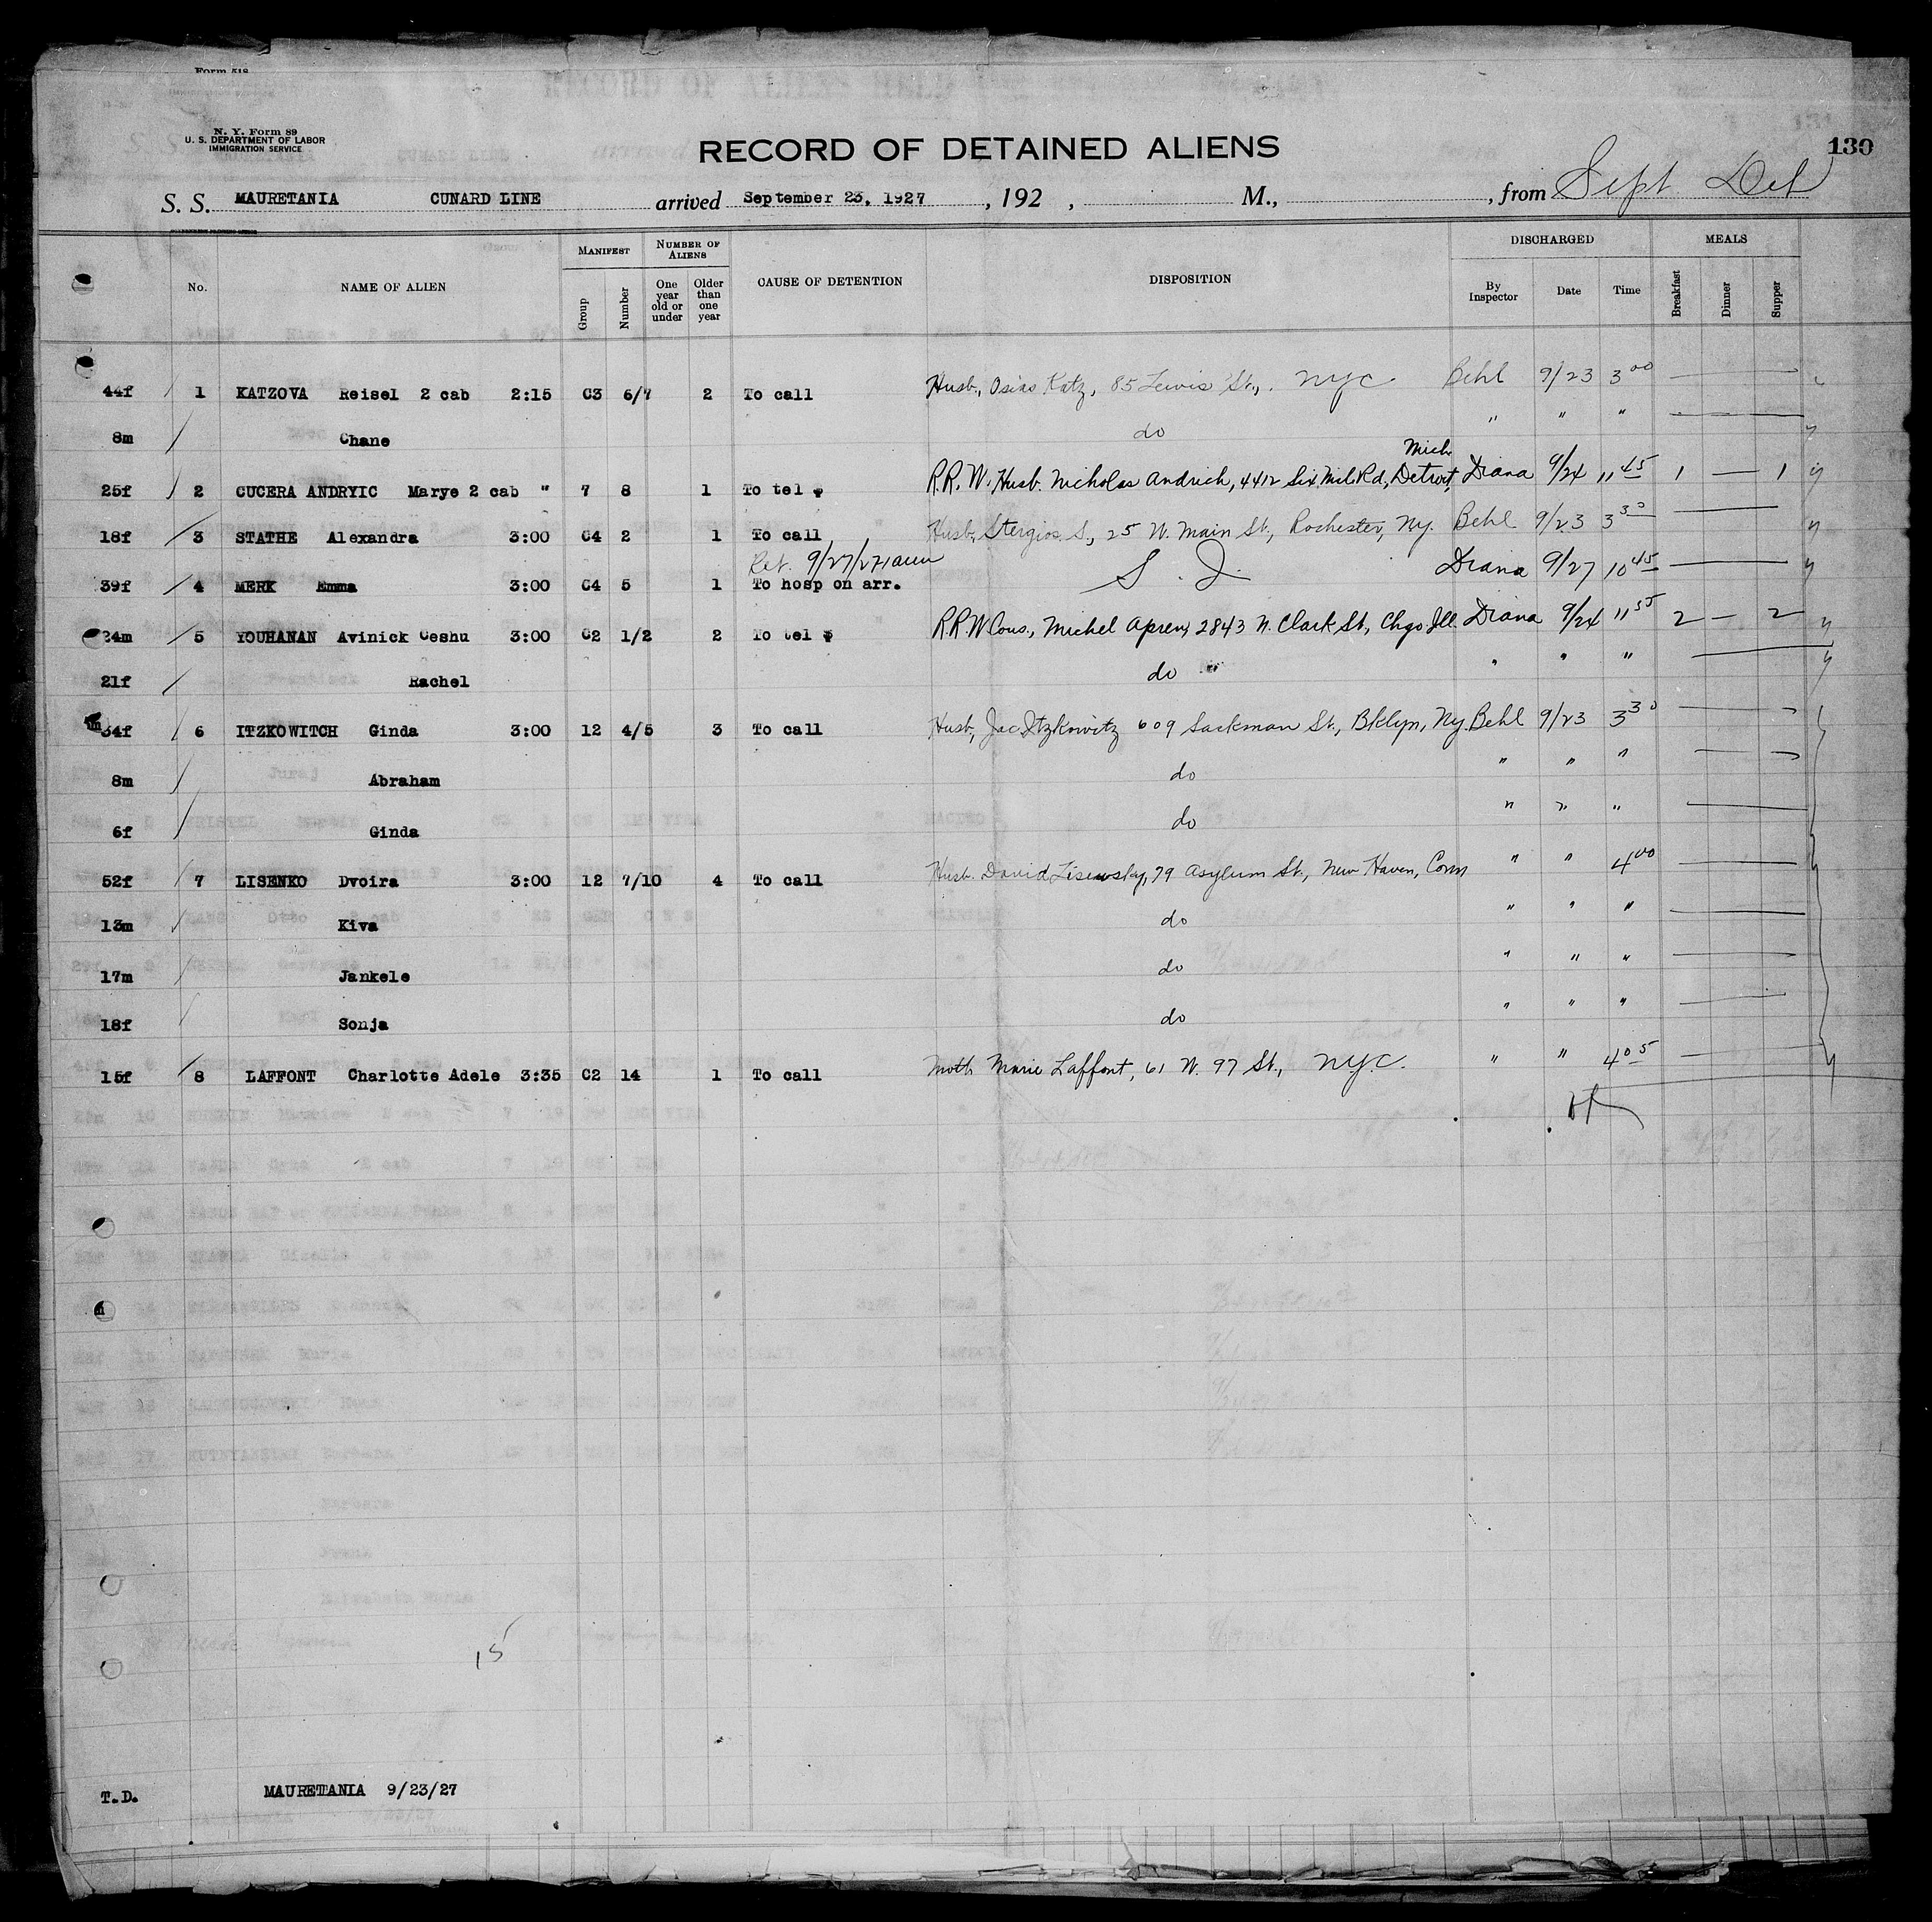 Form 518
N. Y. Form 89
U. S. DEPARTMENT OF LABOR
IMMIGRATION SERVICE
RECORD OF DETAINED ALIENS
130
S. S. MAURETANIA CUNARD LINE arrived September 23, 1927, 192 , M., , from Sept Det
No. NAME OF ALIEN MANIFEST NUMBER OF ALIENS CAUSE OF DETENTION DISPOSITION DISCHARGED MEALS
Group Number One year old or under Older than one year By Inspector Date Time Breakfast Dinner Supper
44f / 1 KATZOVA Reisel 2 cab 2:15 C3 6/7 2 To call Husb., Osias Katz, 85 Lewis St., NYC Behl 9/23 3 00
8m / Chane do " " "
25f / 2 CUCERA ANDRYIC Marye 2 cab " 7 8 1 To tel R.R.W. Husb. Nicholas Andrich, 4412 Six Mil. Rd, Detroit, Mich Diana 9/24 11 45 1 — 1
18f / 3 STATHE Alexandra 3:00 C4 2 1 To call Husb, Stergios S., 25 W. Main St., Rochester, Ny. Behl 9/23 3 30
Ret. 9/27/27
39f / 4 MERK Emma 3:00 C4 5 1 To hosp on arr. S. I. Diana 9/27 10 45
24m / 5 YOUHANAN Avinick Geshu 3:00 C2 1/2 2 To tel R.R.W Cous., Michel Aprem, 2843 N. Clark St., Chgo Ill. Diana 9/24 11 55 2 — 2
21f / Rachel do " " "
34f / 6 ITZKOWITCH Ginda 3:00 12 4/5 3 To call Husb, Jac Itzkowitz 609 Sackman St., Bklyn, Ny. Behl 9/23 3 30
8m / Abraham do " " "
6f / Ginda do " " "
52f / 7 LISENKO Dvoira 3:00 12 7/10 4 To call Husb. David Lisewsky, 79 Asylum St., New Haven, Conn " " 4 00
13m / Kiva do " " "
17m Jankele do " " "
18f Sonja do " " "
15f / 8 LAFFONT Charlotte Adele 3:35 C2 14 1 To call Moth Marie Laffont, 61 W. 97 St., NYC. " " 4 05
15
T.D. MAURETANIA 9/23/27